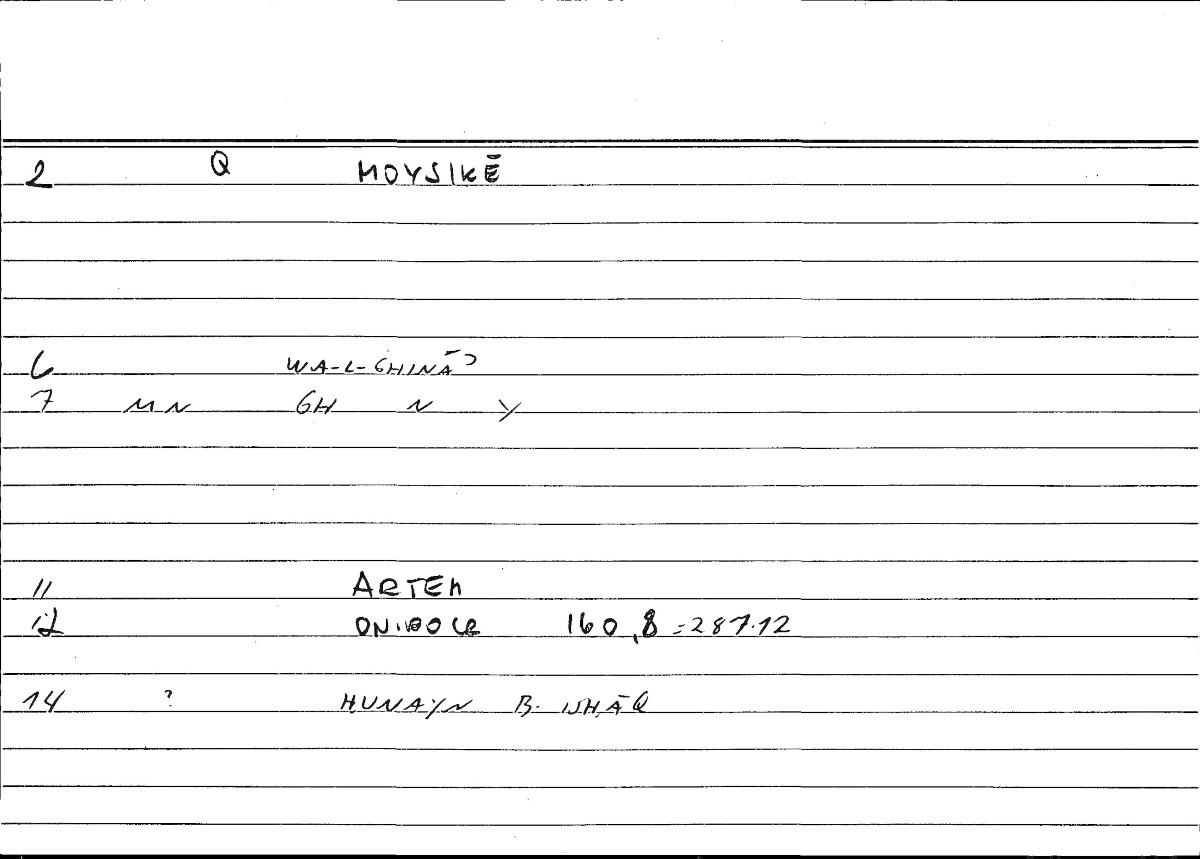 2 Q MOYSIKĒ
6 WA-L-GHINĀʾ
7 MN GH N Y
11 ARTEM
12 160,8 = 287.12
14 ? HUNAYN B. ISḤĀQ